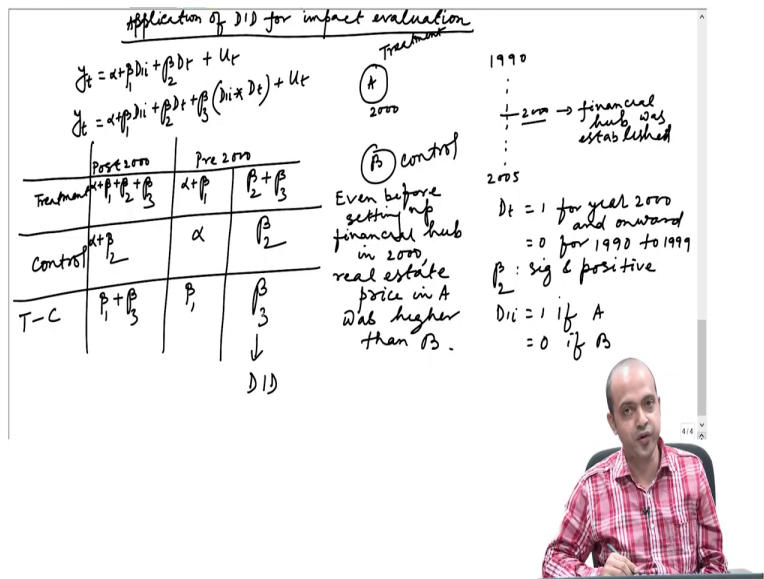 Application of DID for impact evaluation
yt = α+β1D1i + β2Dt + Ut
yt = α+β1D1i + β2Dt + β3(D1i*Dt) + Ut
Treatment
A
2000
B control
Post 2000 Pre 2000
Treatment α+β1+β2+β3 α+β1 β2+β3
Control α+β2 α β2
T-C β1+β3 β1 β3
↓
DID
Even before
setting up
financial hub
in 2000,
real estate
price in A
was higher
than B.
1990
2000 → financial
hub was
established
2005
Dt = 1 for year 2000
and onward
= 0 for 1990 to 1999
β2 : sig & positive
D1i = 1 if A
= 0 if B
4/4